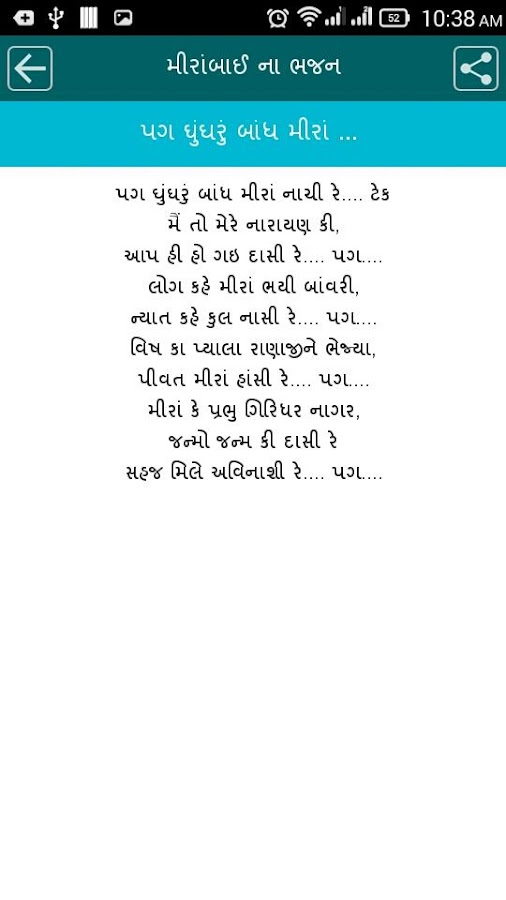 52 10:38 AM
મીરાંબાઈ ના ભજન
પગ ઘુંઘરું બાંધ મીરાં ...
પગ ઘુંઘરું બાંધ મીરાં નાચી રે.... ટેક
મૈં તો મેરે નારાયણ કી,
આપ હી હો ગઇ દાસી રે.... પગ....
લોગ કહે મીરાં ભયી બાંવરી,
ન્યાત કહે કુલ નાસી રે.... પગ....
વિષ કા પ્યાલા રાણાજીને ભેજ્યા,
પીવત મીરાં હાંસી રે.... પગ....
મીરાં કે પ્રભુ ગિરિધર નાગર,
જન્મો જન્મ કી દાસી રે
સહજ મિલે અવિનાશી રે.... પગ....